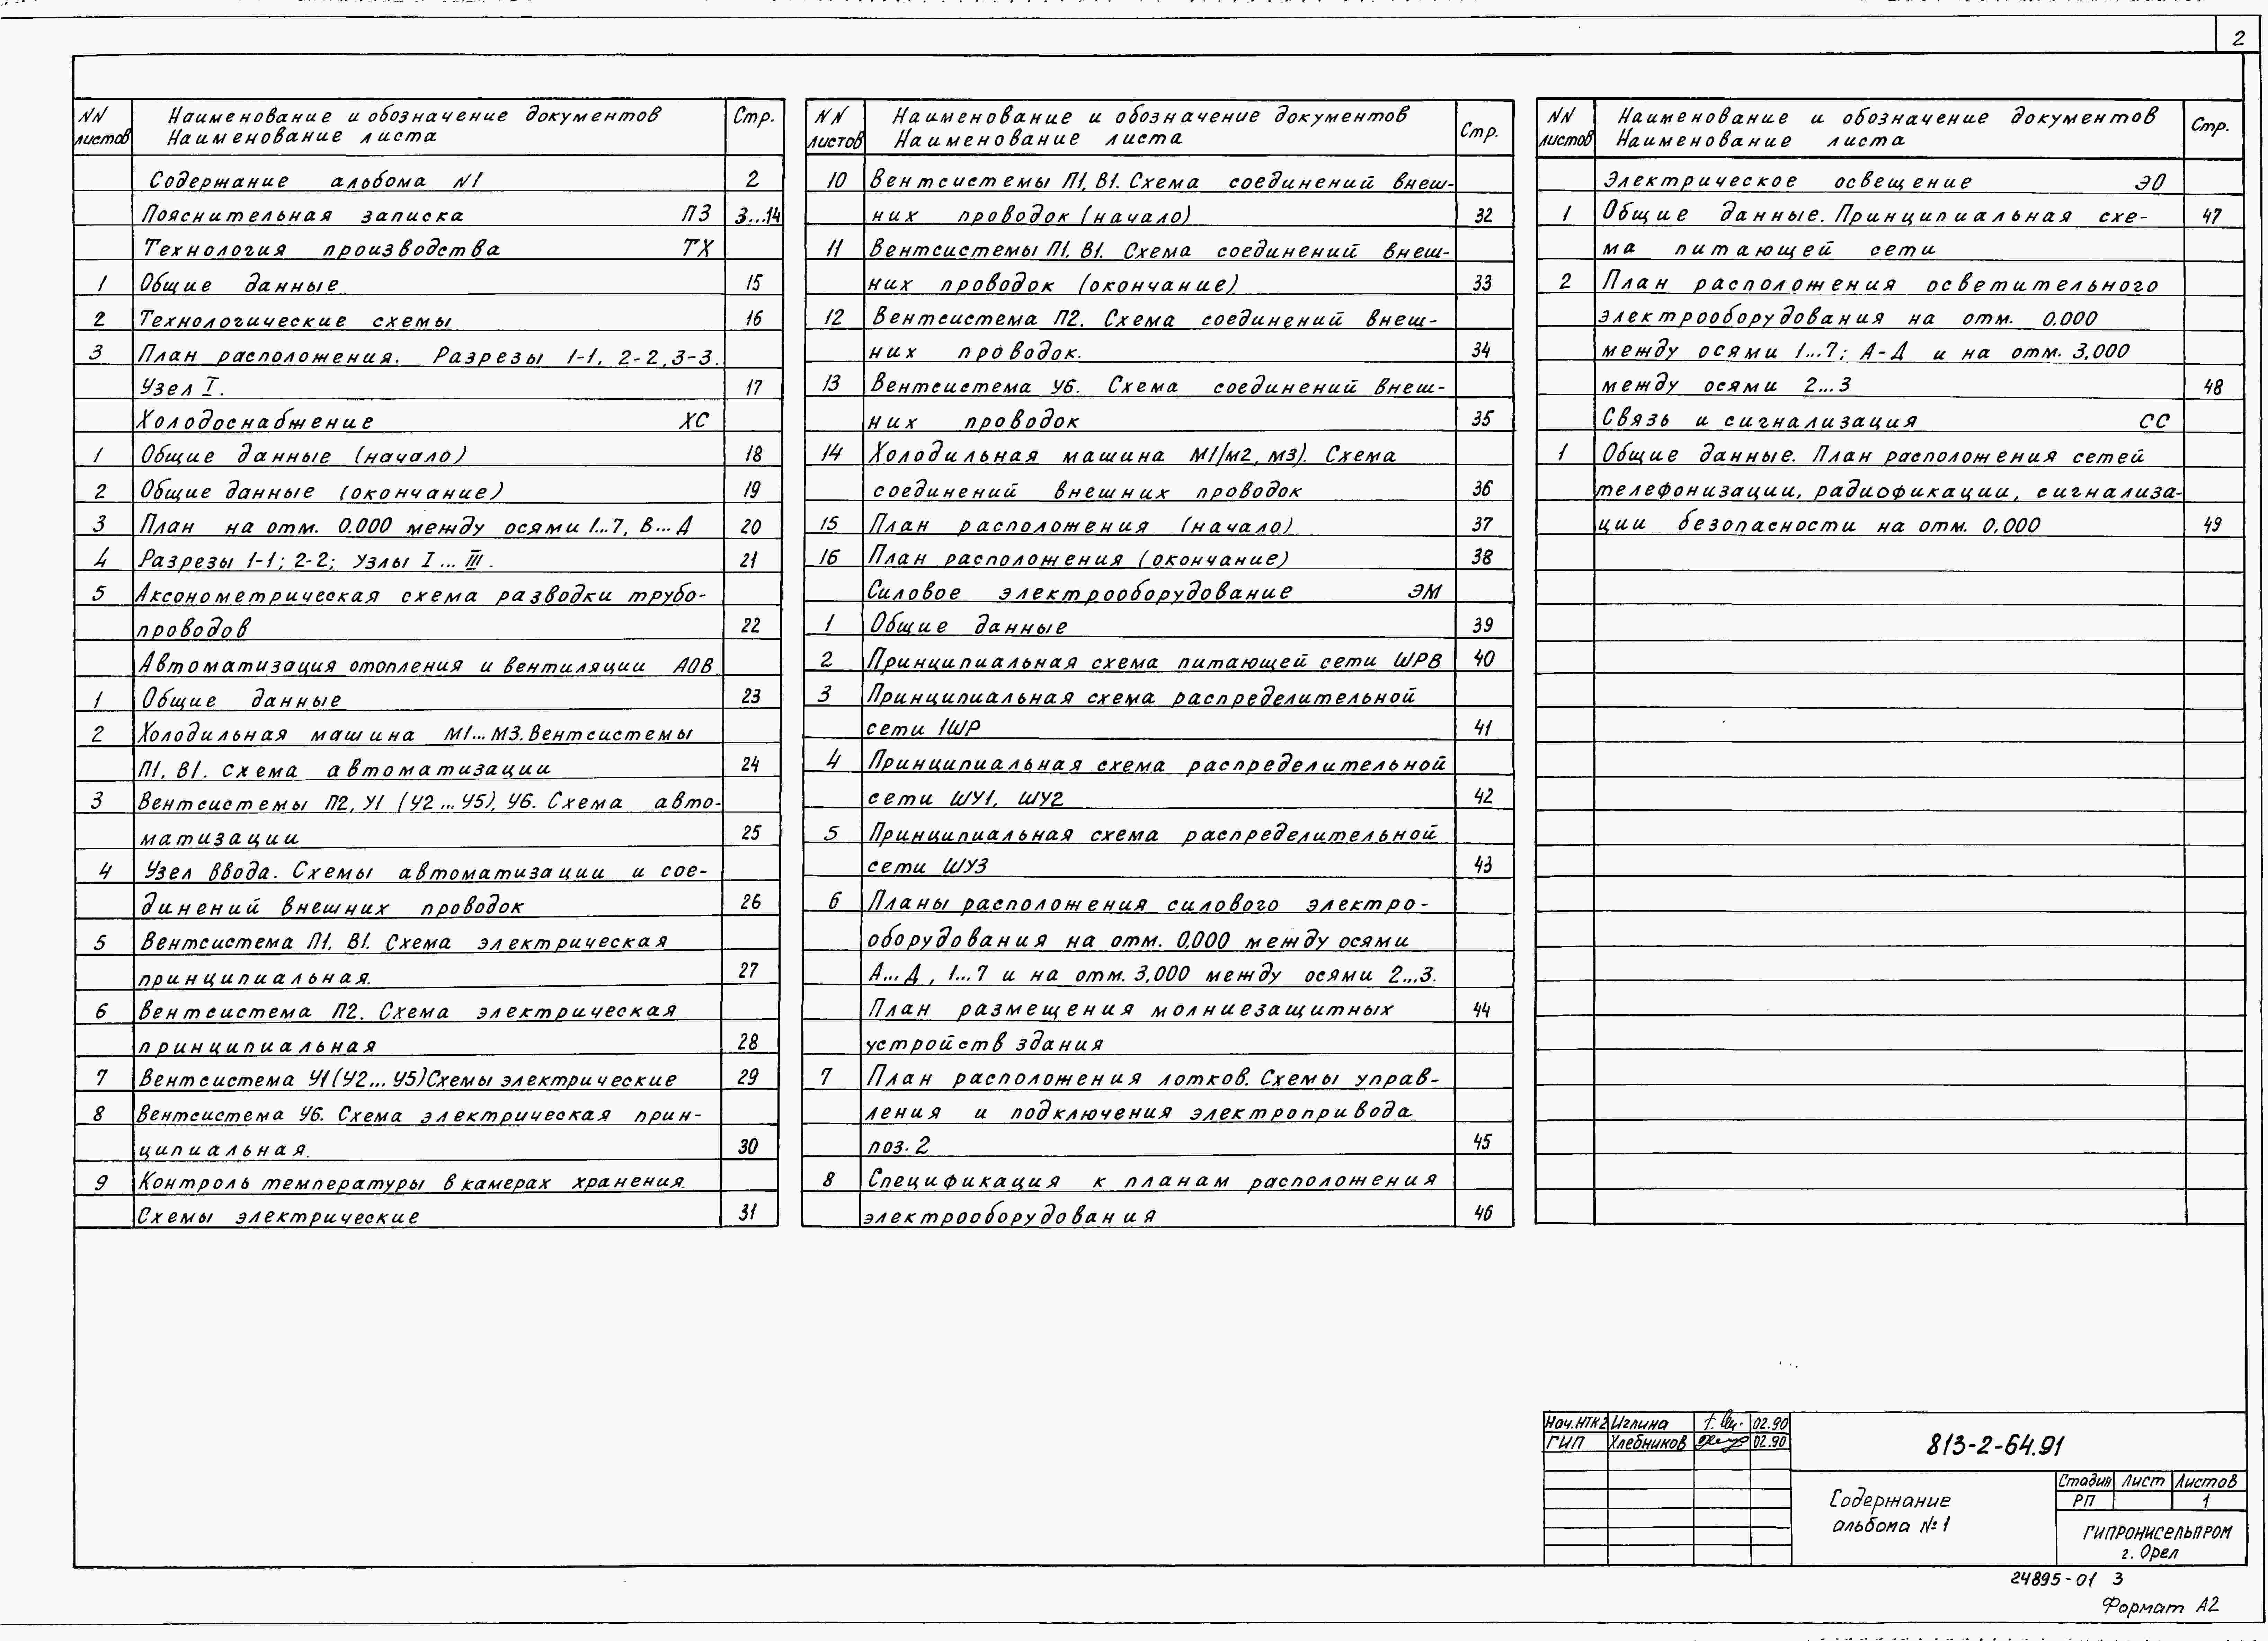 2
NN листов Наименование и обозначение документов Наименование листа Стр.
Содержание альбома N1 2
Пояснительная записка ПЗ 3...14
Технология производства ТХ
1 Общие данные 15
2 Технологические схемы 16
3 План расположения. Разрезы 1-1, 2-2, 3-3.
Узел I. 17
Холодоснабжение ХС
1 Общие данные (начало) 18
2 Общие данные (окончание) 19
3 План на отм. 0.000 между осями 1...7, В...Д 20
4 Разрезы 1-1; 2-2; Узлы I...III. 21
5 Аксонометрическая схема разводки трубо-
проводов 22
Автоматизация отопления и вентиляции АОВ
1 Общие данные 23
2 Холодильная машина М1...М3. Вентсистемы
П1, В1. Схема автоматизации 24
3 Вентсистемы П2, У1 (У2...У5), У6. Схема авто-
матизации 25
4 Узел ввода. Схемы автоматизации и сое-
динений внешних проводок 26
5 Вентсистема П1, В1. Схема электрическая
принципиальная. 27
6 Вентсистема П2. Схема электрическая
принципиальная 28
7 Вентсистема У1 (У2...У5) Схемы электрические 29
8 Вентсистема У6. Схема электрическая прин-
ципиальная. 30
9 Контроль температуры в камерах хранения.
Схемы электрические 31
NN листов Наименование и обозначение документов Наименование листа Стр.
10 Вентсистемы П1, В1. Схема соединений внеш-
них проводок (начало) 32
11 Вентсистемы П1, В1. Схема соединений внеш-
них проводок (окончание) 33
12 Вентсистема П2. Схема соединений внеш-
них проводок. 34
13 Вентсистема У6. Схема соединений внеш-
них проводок 35
14 Холодильная машина М1/м2, м3). Схема
соединений внешних проводок 36
15 План расположения (начало) 37
16 План расположения (окончание) 38
Силовое электрооборудование ЭМ
1 Общие данные 39
2 Принципиальная схема питающей сети ШРВ 40
3 Принципиальная схема распределительной
сети 1ШР 41
4 Принципиальная схема распределительной
сети ШУ1, ШУ2 42
5 Принципиальная схема распределительной
сети ШУ3 43
6 Планы расположения силового электро-
оборудования на отм. 0,000 между осями
А...Д, 1...7 и на отм. 3,000 между осями 2...3.
План размещения молниезащитных 44
устройств здания
7 План расположения лотков. Схемы управ-
ления и подключения электропривода
поз. 2 45
8 Спецификация к планам расположения
электрооборудования 46
NN листов Наименование и обозначение документов Наименование листа Стр.
Электрическое освещение ЭО
1 Общие данные. Принципиальная схе- 47
ма питающей сети
2 План расположения осветительного
электрооборудования на отм. 0.000
между осями 1...7; А-Д и на отм. 3,000
между осями 2...3 48
Связь и сигнализация СС
1 Общие данные. План расположения сетей
телефонизации, радиофикации, сигнализа-
ции безопасности на отм. 0,000 49
Нач. НТК2 Иглина 02.90
ГИП Хлебников 02.90
813-2-64.91
Содержание
альбома №1
Стадия Лист Листов
РП 1
ГИПРОНИСЕЛЬПРОМ
г. Орел
24895-01 3
Формат А2